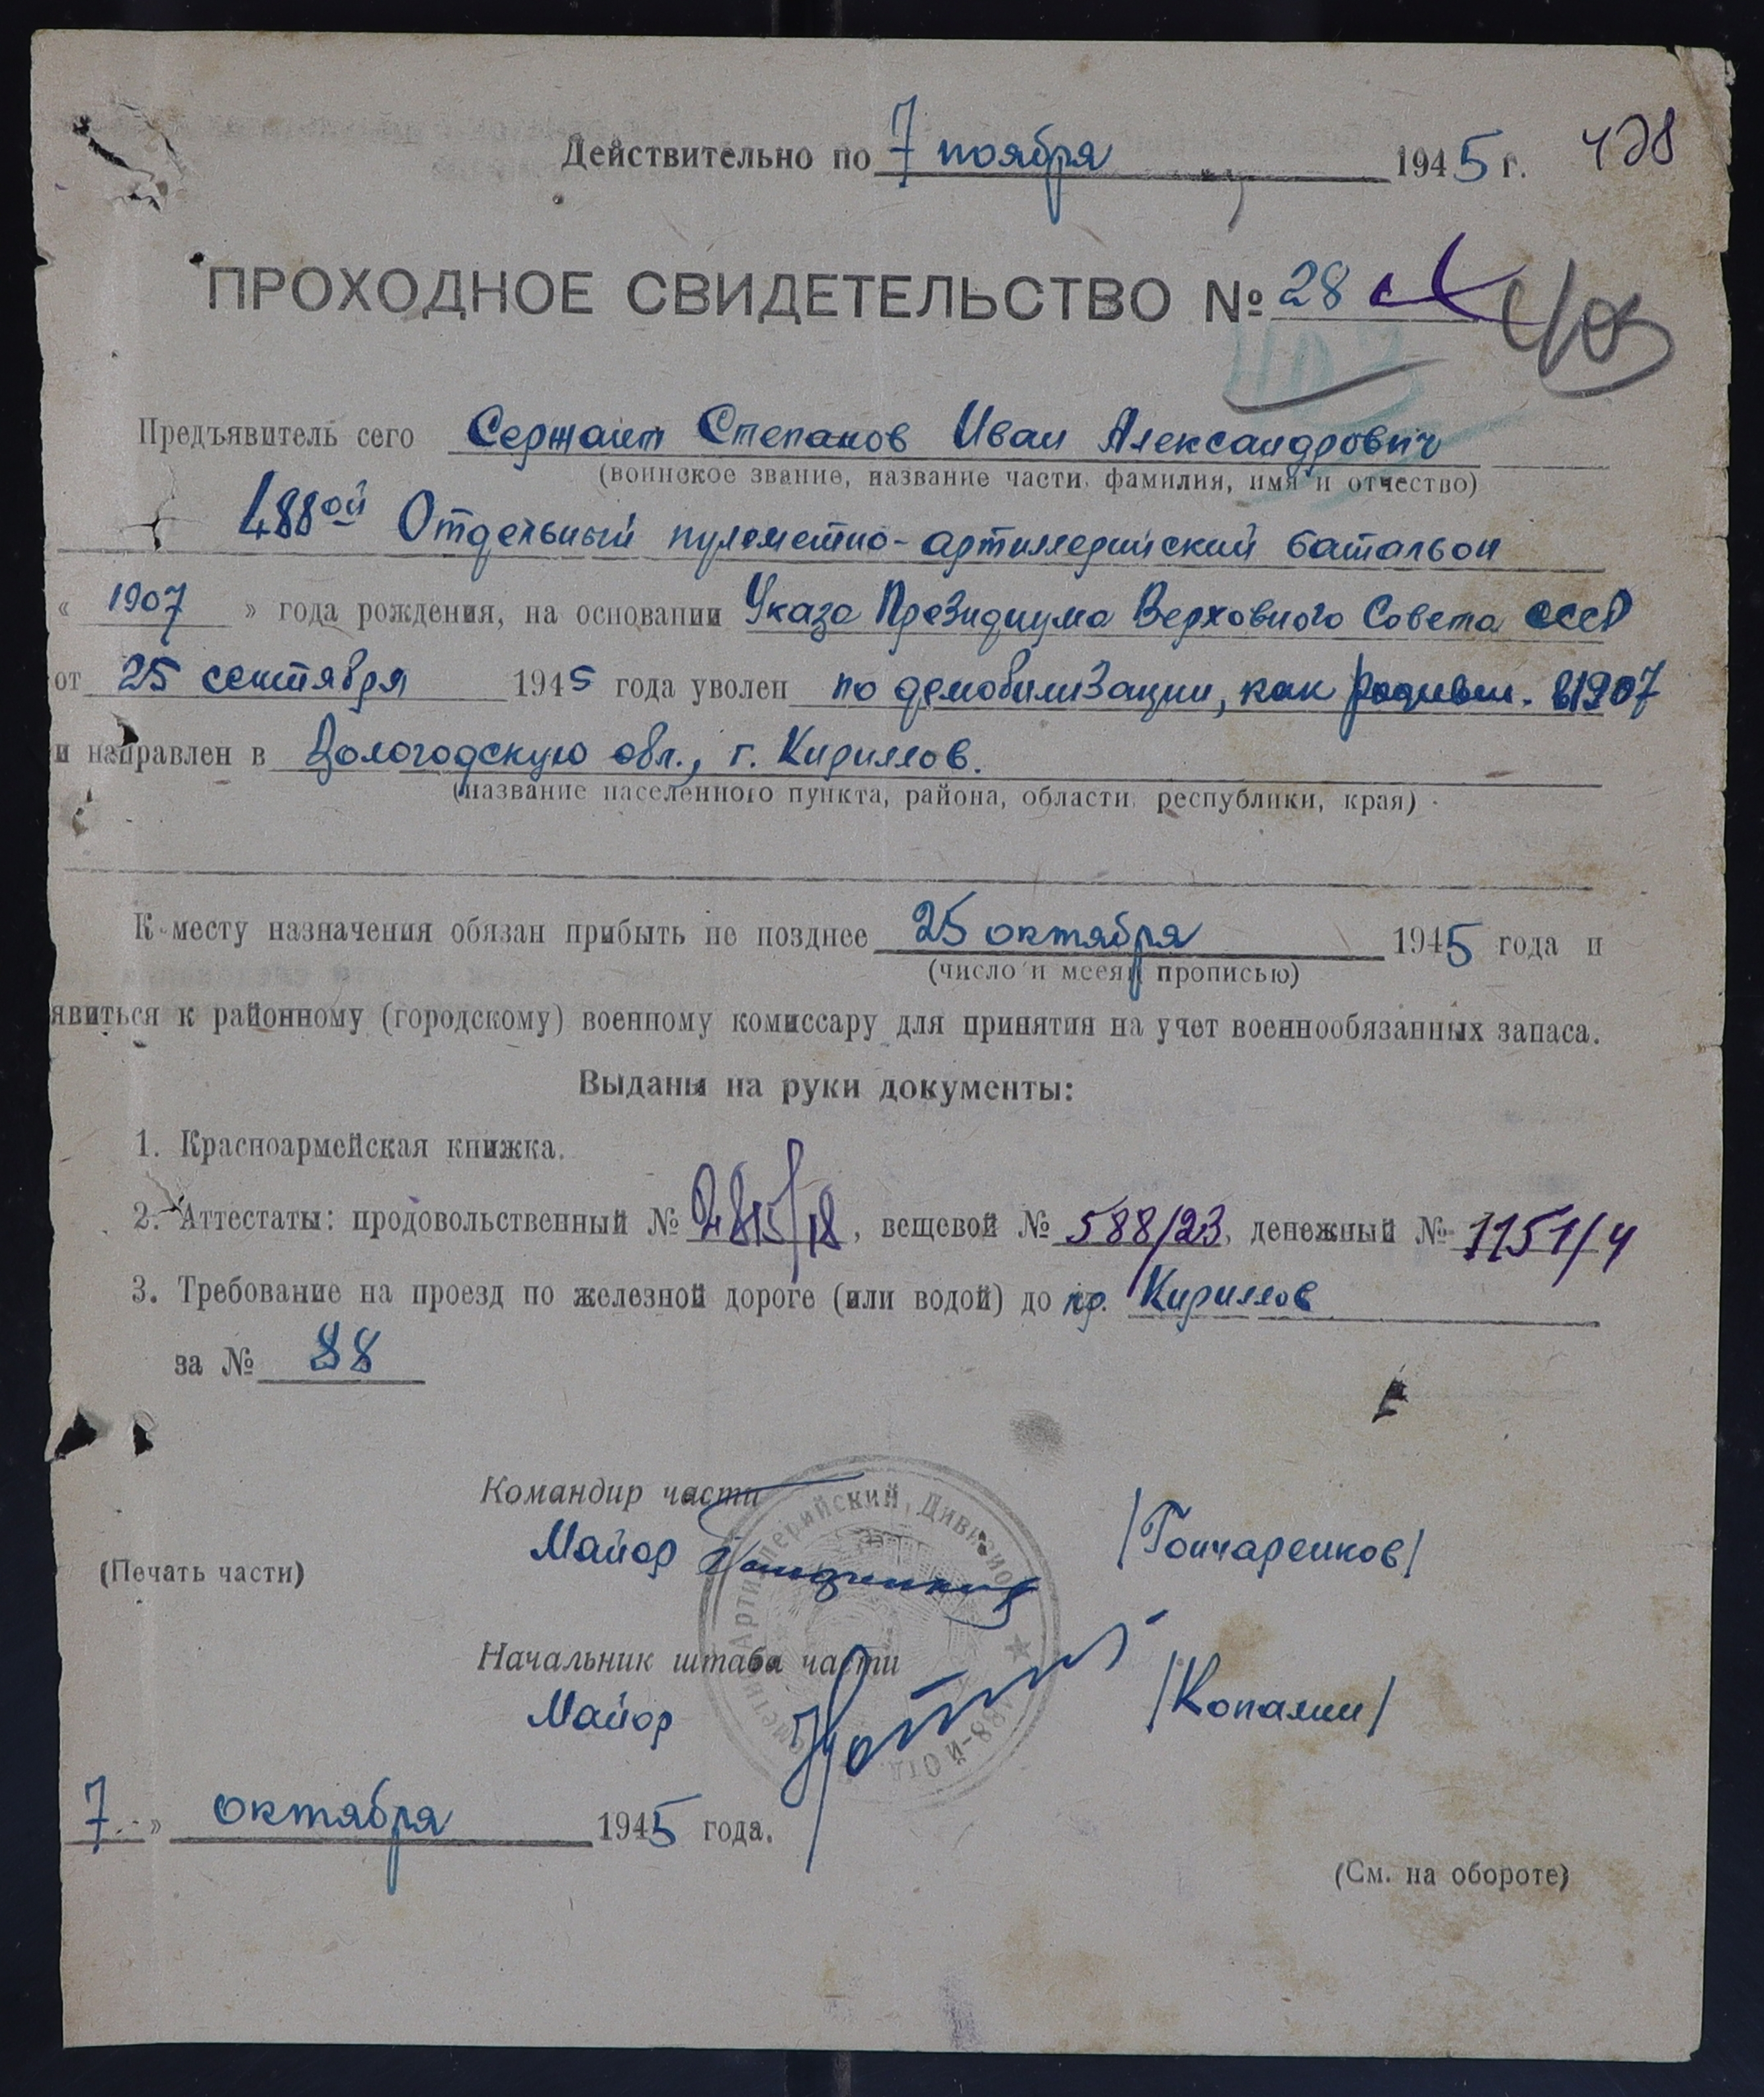 Действительно по 7 ноября 1945 г. 428
ПРОХОДНОЕ СВИДЕТЕЛЬСТВО № 28
Предъявитель сего Сержант Степанов Иван Александрович
(воинское звание, название части, фамилия, имя и отчество)
488ой Отдельный пулеметно-артиллерийский батальон
« 1907 » года рождения, на основании Указа Президиума Верховного Совета СССР
от 25 сентября 1945 года уволен по демобилизации, как родивш. в 1907
и направлен в Вологодскую обл., г. Кириллов.
(название населенного пункта, района, области, республики, края)
К месту назначения обязан прибыть не позднее 25 октября 1945 года и
(число и месяц прописью)
явиться к районному (городскому) военному комиссару для принятия на учет военнообязанных запаса.
Выданы на руки документы:
1. Красноармейская книжка.
2. Аттестаты: продовольственный № 2815/18, вещевой № 588/23, денежный № 1151/4
3. Требование на проезд по железной дороге (или водой) до Кириллов
за № 88
Командир части
Майор /Гончаренков/
(Печать части)
Начальник штаба части
Майор /Копалин/
7 » октября 1945 года.
(См. на обороте)